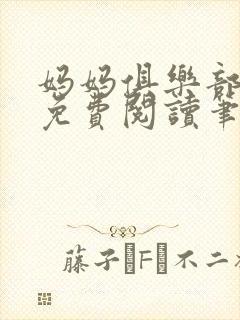 妈妈俱樂部
免費閱讀筆
藤子·F·不二